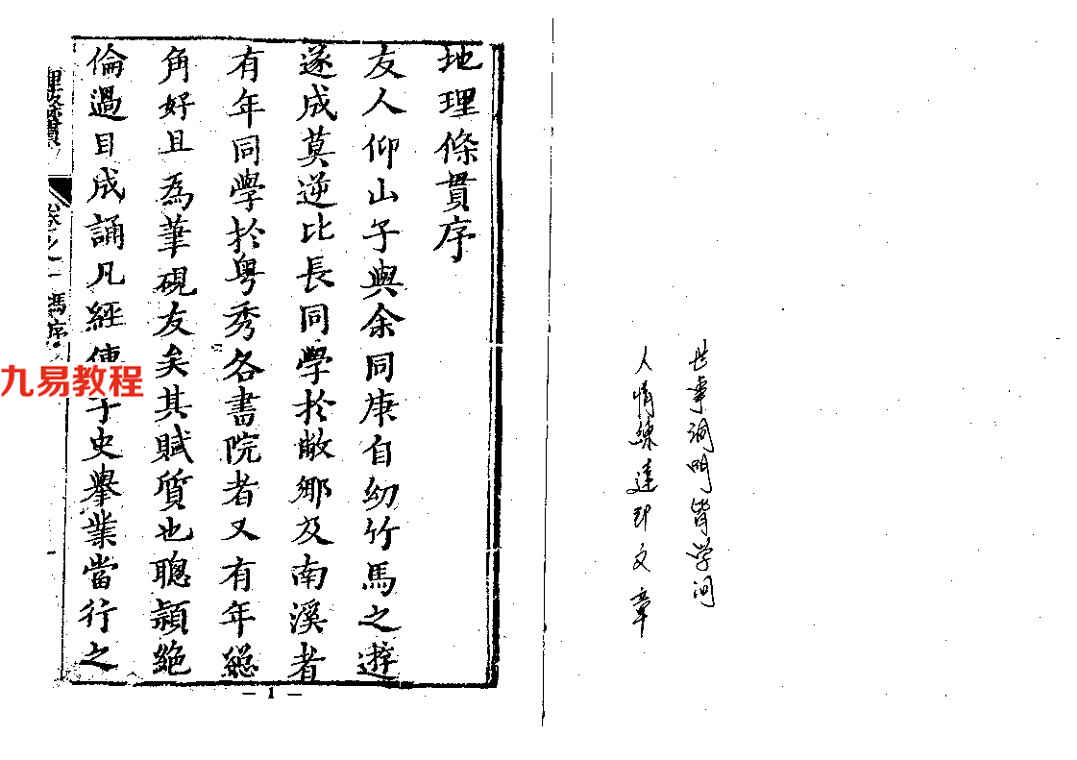 世事洞明皆学问
人情練达即文章
地理條貫序
友人仰山子與余同庚自幼竹馬之遊
遂成莫逆比長同學於敝鄉及南溪者
有年同學於粵秀各書院者又有年總
角好且為筆硯友矣其賦質也聰穎絕
倫過目成誦凡經傳子史舉業當行之
理條貫
卷之一 馮序
九易教程
— 1 —